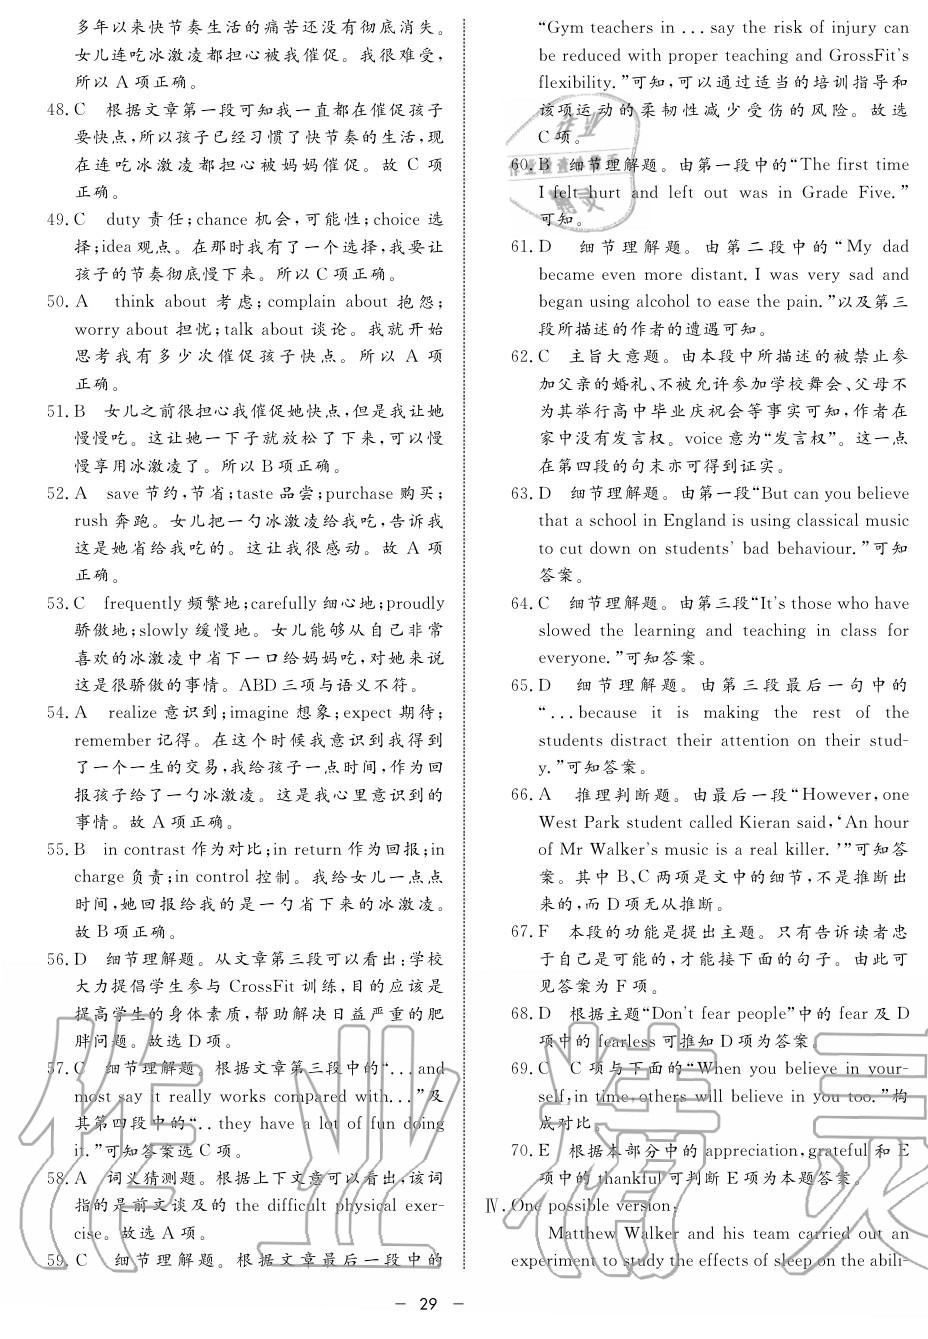 多年以来快节奏生活的痛苦还没有彻底消失。
女儿连吃冰激凌都担心被我催促。我很难受,
所以 A 项正确。
48. C 根据文章第一段可知我一直都在催促孩子
要快点,所以孩子已经习惯了快节奏的生活,现
在连吃冰激凌都担心被妈妈催促。故 C 项
正确。
49. C duty 责任;chance 机会,可能性;choice 选
择;idea 观点。在那时我有了一个选择,我要让
孩子的节奏彻底慢下来。所以 C 项正确。
50. A think about 考虑;complain about 抱怨;
worry about 担忧;talk about 谈论。我就开始
思考我有多少次催促孩子快点。所以 A 项
正确。
51. B 女儿之前很担心我催促她快点,但是我让她
慢慢吃。这让她一下子就放松了下来,可以慢
慢享用冰激凌了。所以 B 项正确。
52. A save 节约,节省;taste 品尝;purchase 购买;
rush 奔跑。女儿把一勺冰激凌给我吃,告诉我
这是她省给我吃的。这让我很感动。故 A 项
正确。
53. C frequently 频繁地;carefully 细心地;proudly
骄傲地;slowly 缓慢地。女儿能够从自己非常
喜欢的冰激凌中省下一口给妈妈吃,对她来说
这是很骄傲的事情。ABD 三项与语义不符。
54. A realize 意识到;imagine 想象;expect 期待;
remember 记得。在这个时候我意识到我得到
了一个一生的交易,我给孩子一点时间,作为回
报孩子给了一勺冰激凌。这是我心里意识到的
事情。故 A 项正确。
55. B in contrast 作为对比;in return 作为回报;in
charge 负责;in control 控制。我给女儿一点点
时间,她回报给我的是一勺省下来的冰激凌。
故 B 项正确。
56. D 细节理解题。从文章第三段可以看出:学校
大力提倡学生参与 CrossFit 训练,目的应该是
提高学生的身体素质,帮助解决日益严重的肥
胖问题。故选 D 项。
57. C 细节理解题。根据文章第三段中的“...and
most say it really works compared with...”及
其第四段中的“.. they have a lot of fun doing
it.”可知答案选 C 项。
58. A 词义猜测题。根据上下文意可以看出,该词
指的是前文谈及的 the difficult physical exer-
cise。故选 A 项。
59. C 细节理解题。根据文章最后一段中的
“Gym teachers in ... say the risk of injury can
be reduced with proper teaching and GrossFit's
flexibility.”可知,可以通过适当的培训指导和
该项运动的柔韧性减少受伤的风险。故选
C 项。
60. B 细节理解题。由第一段中的“The first time
I felt hurt and left out was in Grade Five.”
可知。
61. D 细节理解题。由第二段中的“My dad
became even more distant. I was very sad and
began using alcohol to ease the pain.”以及第三
段所描述的作者的遭遇可知。
62. C 主旨大意题。由本段中所描述的被禁止参
加父亲的婚礼、不被允许参加学校舞会、父母不
为其举行高中毕业庆祝会等事实可知,作者在
家中没有发言权。voice 意为“发言权”。这一点
在第四段的句末亦可得到证实。
63. D 细节理解题。由第一段“But can you believe
that a school in England is using classical music
to cut down on students' bad behaviour.”可知
答案。
64. C 细节理解题。由第三段“It's those who have
slowed the learning and teaching in class for
everyone.”可知答案。
65. D 细节理解题。由第三段最后一句中的
“...because it is making the rest of the
students distract their attention on their stud-
y.”可知答案。
66. A 推理判断题。由最后一段“However, one
West Park student called Kieran said, ‘An hour
of Mr Walker's music is a real killer.’”可知答
案。其中 B、C 两项是文中的细节,不是推断出
来的,而 D 项无从推断。
67. F 本段的功能是提出主题。只有告诉读者忠
于自己是可能的,才能接下面的句子。由此可
见答案为 F 项。
68. D 根据主题“Don't fear people”中的 fear 及 D
项中的 fearless 可推知 D 项为答案。
69. C C 项与下面的“When you believe in your-
self, in time, others will believe in you too.”构
成对比。
70. E 根据本部分中的 appreciation, grateful 和 E
项中的 thankful 可判断 E 项为本题答案。
Ⅳ. One possible version:
Matthew Walker and his team carried out an
experiment to study the effects of sleep on the abili-
— 29 —
作业精灵